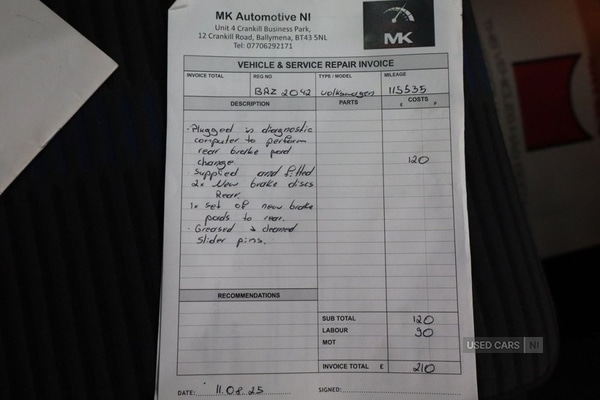 MK Automotive NI
Unit 4 Crankill Business Park,
12 Crankill Road, Ballymena, BT43 5NL
Tel: 07706292171
MK
VEHICLE & SERVICE REPAIR INVOICE
INVOICE TOTAL REG NO TYPE / MODEL MILEAGE
BRZ 2042 Volkswagen 115535
DESCRIPTION PARTS £ COSTS P
· Plugged in diagnostic
computer to perform
rear brake pad
change. 120
· Supplied and fitted
2x New brake discs
Rear.
1x set of new brake
pads to rear.
· Greased & cleaned
slider pins.
RECOMMENDATIONS
SUB TOTAL 120
LABOUR 90
MOT
INVOICE TOTAL £ 210
DATE: 11.08.25 SIGNED:
USED CARS NI